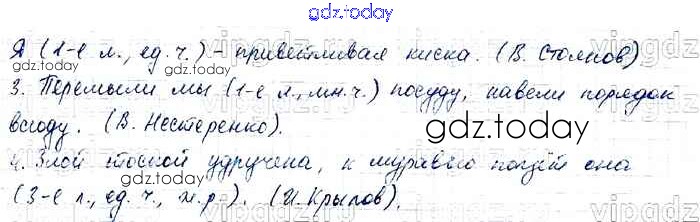 gdz.today
Я (1-е л., ед. ч.) - приветливая киска. (В. Столнов)
gdz.today
3. Перемыли мы (1-е л., мн. ч.) посуду, навели порядок
всюду. (В. Нестеренко).
gdz.today
4. Злой тоской удручена, к муравью ползёт она
(3-е л., ед. ч., ж. р.). (И. Крылов).
gdz.today